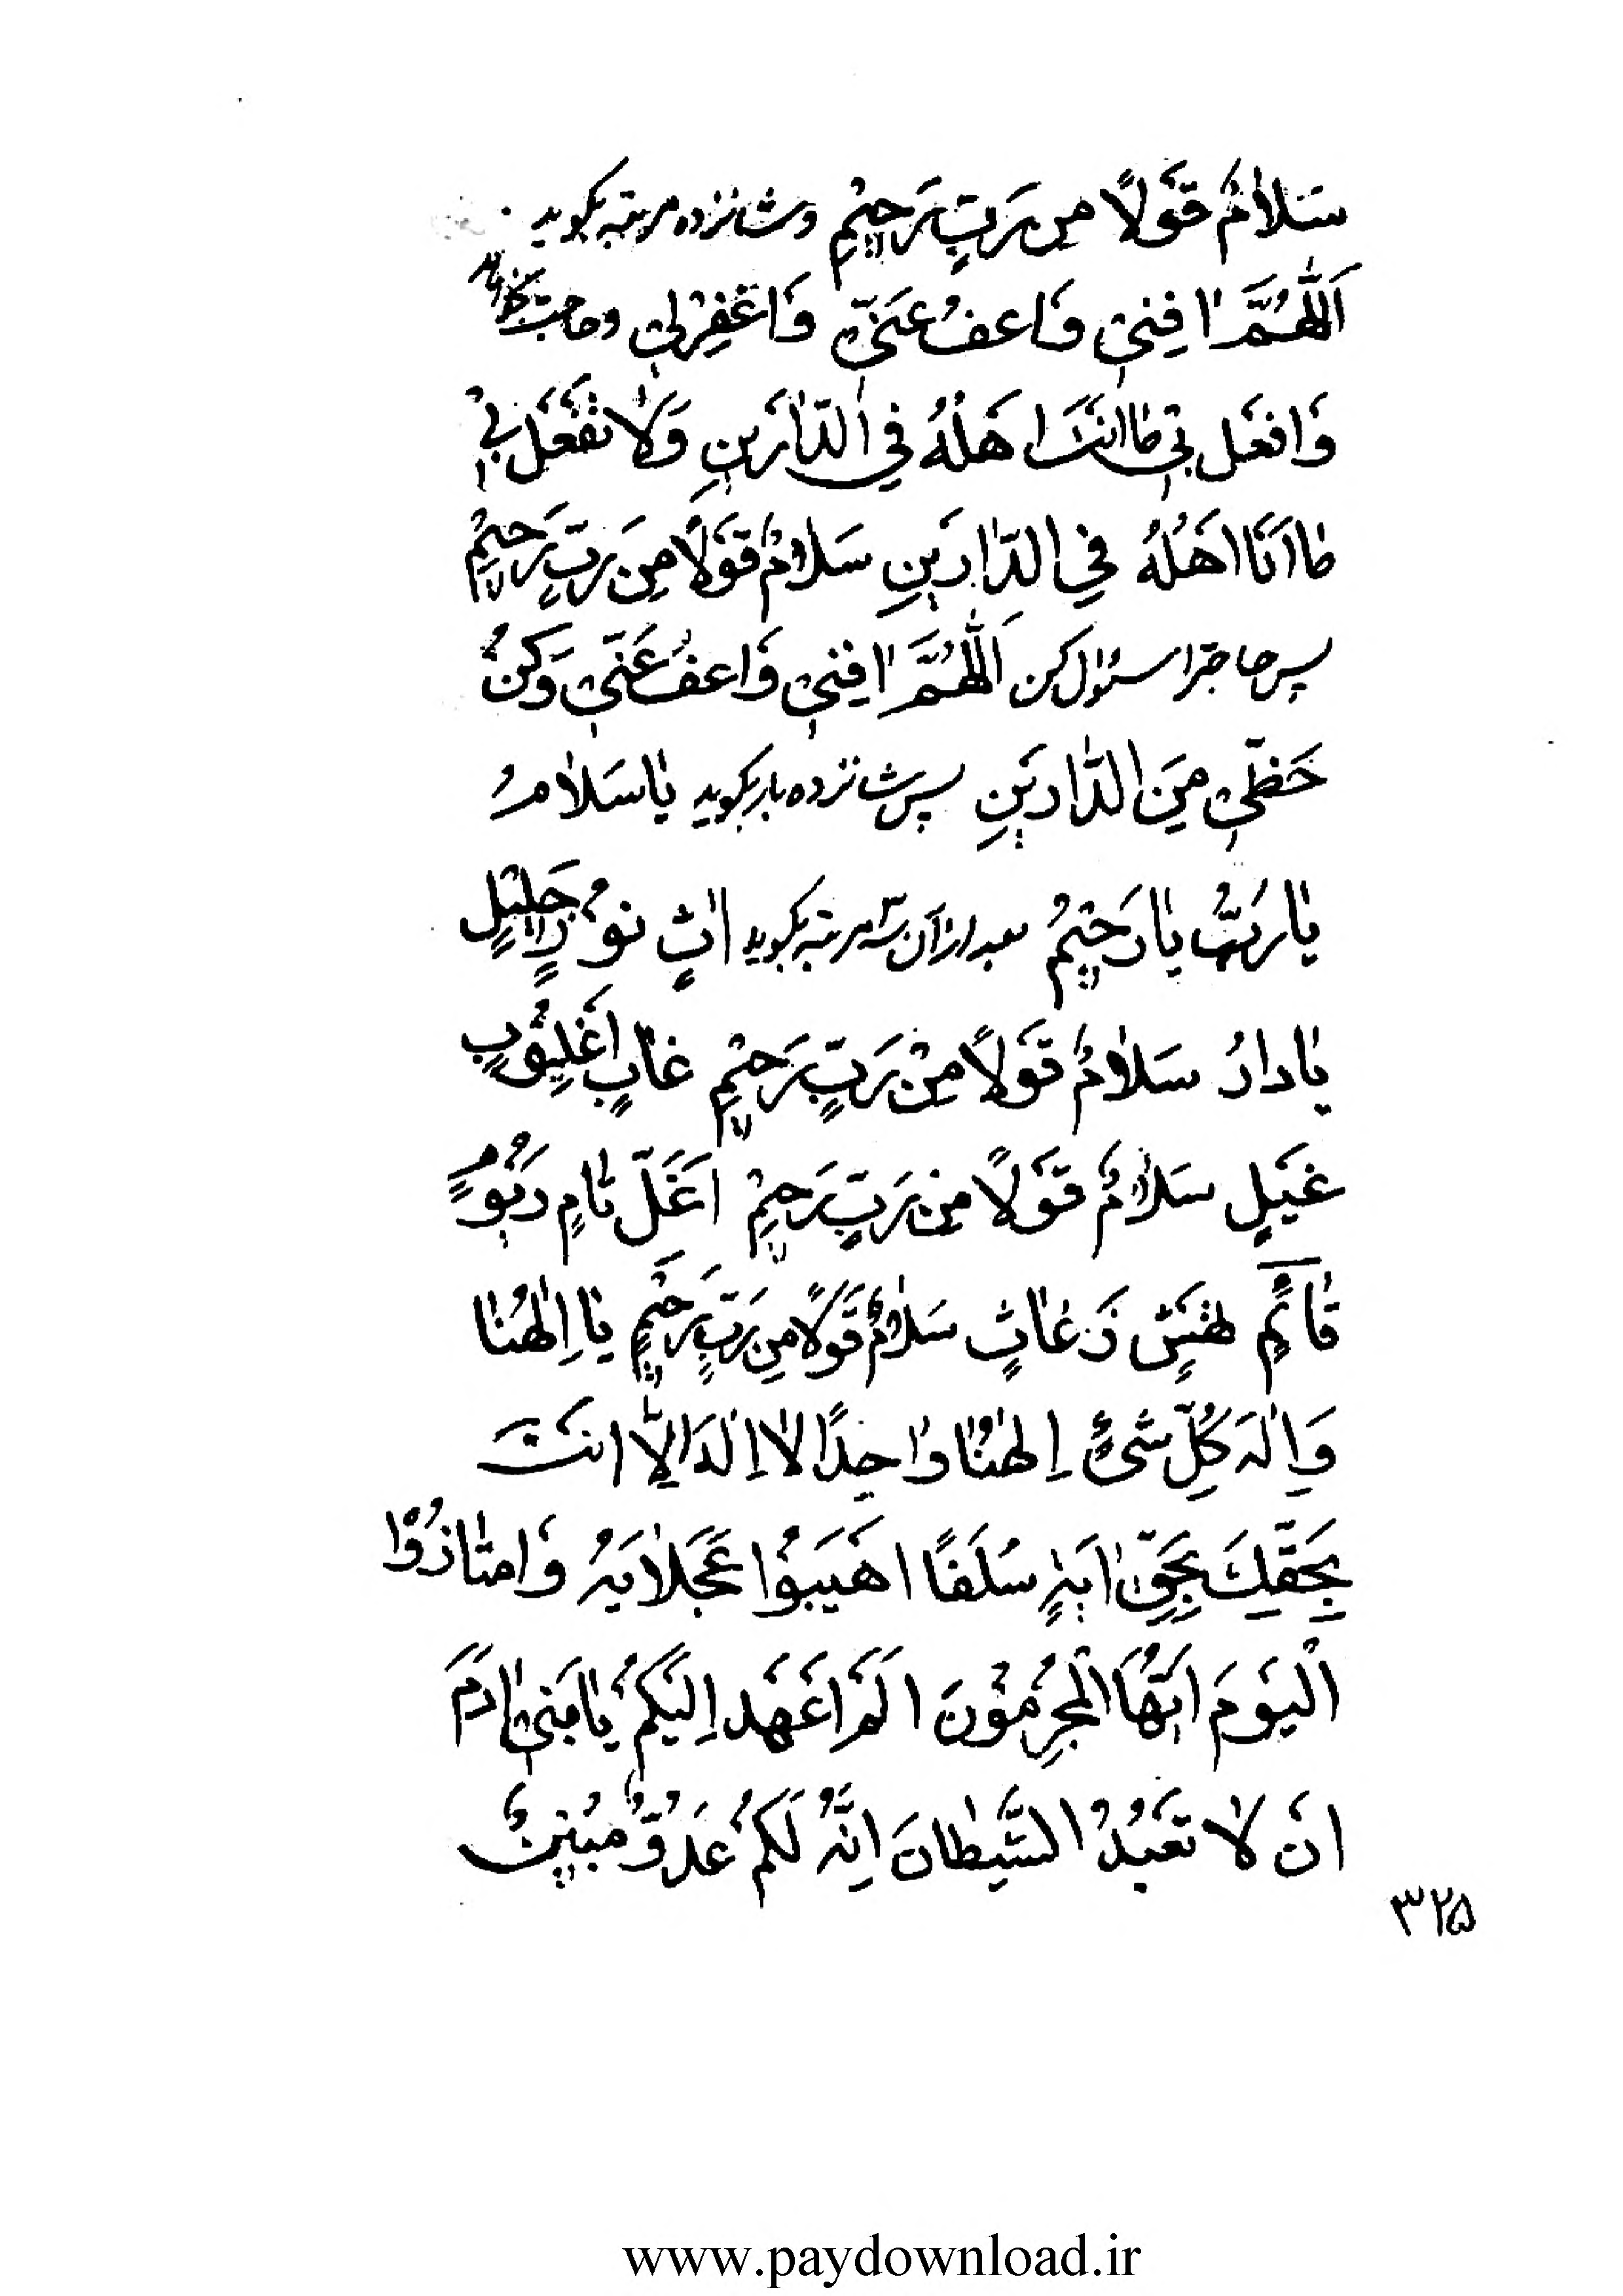 سَلاٰمٌ قَوْلاً مِن رَبٍّ رَحيٖمٍ وشانزده مرتبه بگوید
اَللّٰهُمَّ اٰفِنیٖ وَاعفُ عَنّیٖ وَاغْفِرْلیٖ وحاجت بخواهد
وَافعَل بیٖ مٰا اَنتَ اَهلُهُ فِی الدّٰارَینِ وَلاٰ تَفْعَل بیٖ
مٰا اَنَا اَهلُهُ فِی الدّٰارَینِ سَلاٰمٌ قَوْلاً مِن رَبٍّ رَحیٖمٍ
پس حاجترا سئوال کن اَللّٰهُمَّ اٰفِنیٖ وَاعفُ عَنّیٖ وَکُنْ
حَظّیٖ مِنَ الدّٰارَینِ پس شانزده بار بگوید یٰاسَلاٰمُ
یٰارَبُّ یٰارَحیٖمُ بعد از آن سه مرتبه بگوید اٰثٍ نوُرٍ جَلیٖلٍ
یٰادارُ سَلاٰمٌ قَوْلاً مِنْ رَبٍّ رَحیٖمٍ غٰابٍ اَغلِیوُبٍ
غَیَلٍ سَلاٰمٌ قَوْلاً مِن رَبٍّ رَحیٖمٍ اَغَلّ تٰامٍ دَیوُمٍ
قٰائمٍ سَلاٰمٌ قَوْلاً مِن رَبٍّ رَحیٖمٍ یٰا اِلٰهُنٰا
وَاِلٰهَ کُلِّ شَیْءٍ اِلٰهُنٰا وٰاحِدًا لاٰ اِلٰهَ اِلاّٰ اَنتَ
بِحَقِّکَ بِحَقِّ اٰیَةٍ سُلَفًا اَهیَبوُا عَجَلاٰیَهُ وَامتٰازُوا
الْیَوْمَ اَیُّهَا الْمُجرِموُنَ اَلَمْ اَعْهَد اِلَیْکُمْ یٰابَنیٖ اٰدَمَ
اَنْ لاٰ تَعْبُدُ الشَّیطٰانَ اِنَّهُ لَکُمْ عَدُوٌّ مُبیٖنٌ
۳۲۵
www.paydownload.ir